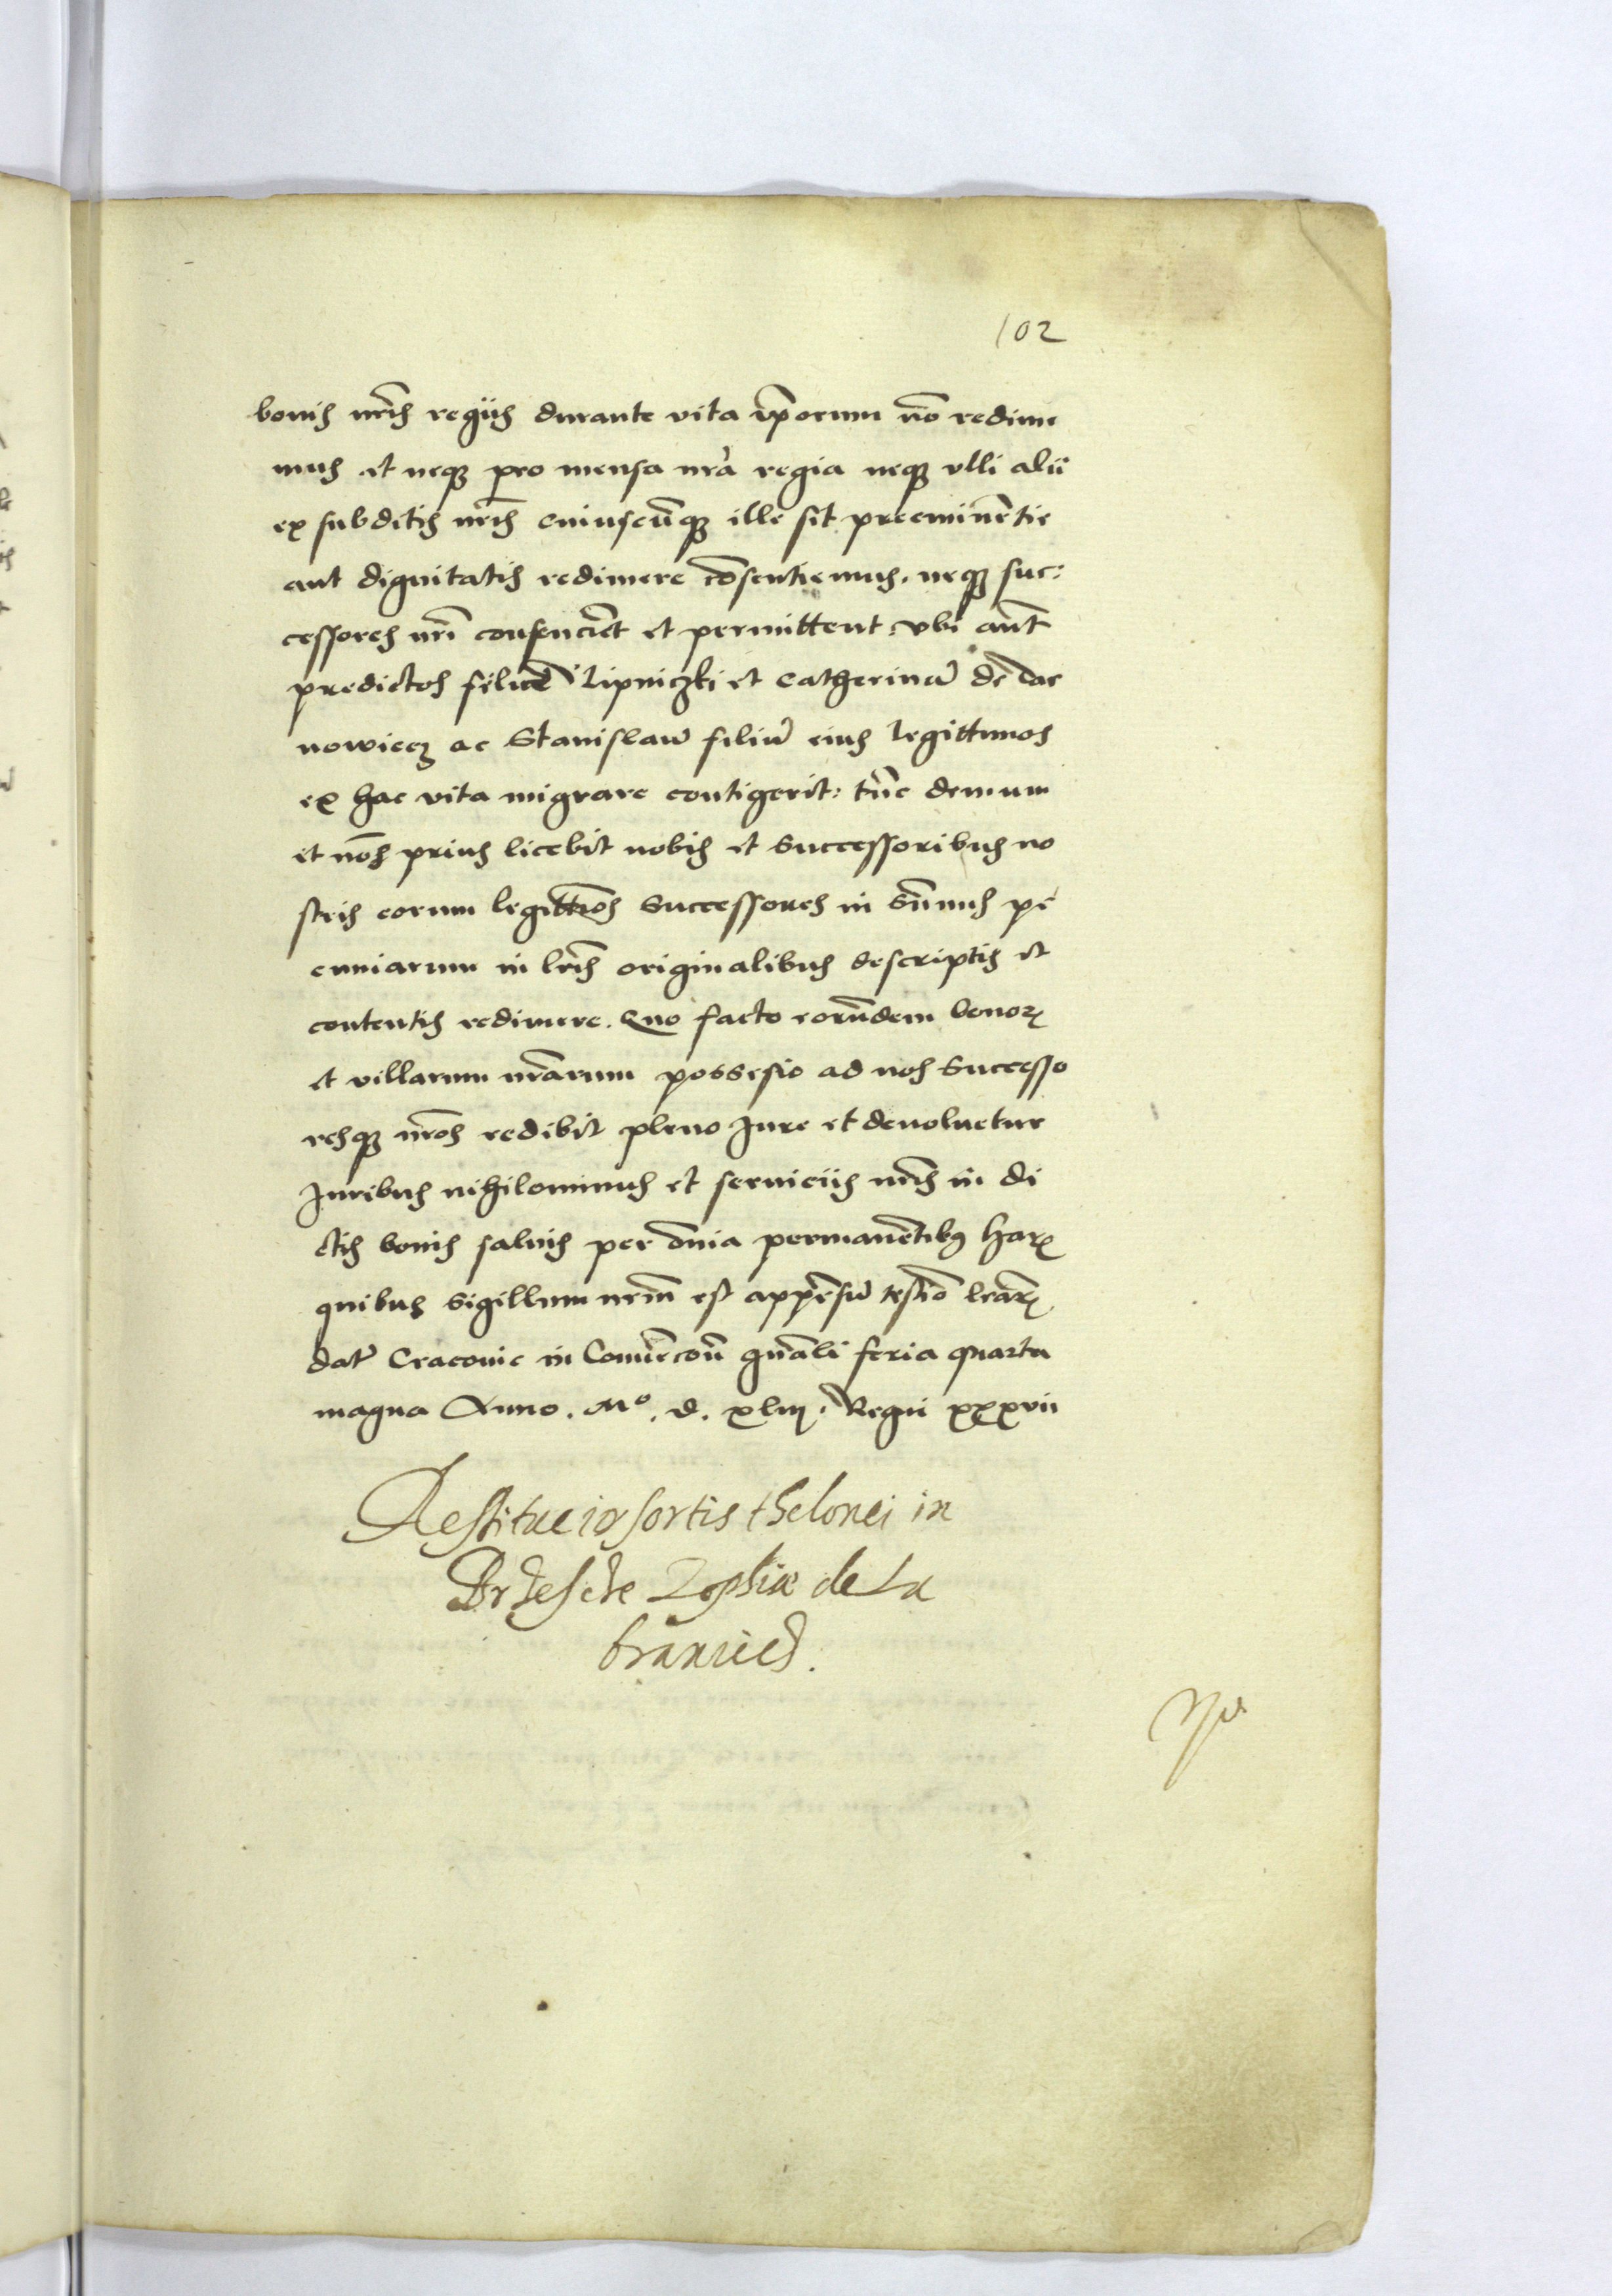 102
bonis nr̃is regiis durante vita ip̃orum nõ redimi
mus et neqȝ pro mensa nr̃a regia neqȝ vlli alii
ex subditis nr̃is cuiuscũqȝ ille sit preeminẽtie
aut dignitatis redimere cõsentiemus. neqȝ suc:
cessores nr̃i consencient et permittent. vbi aũt
predictos felicẽ Lipniczki et Catherinã de dac
nowicze ac Stanislaũ filiũ eius legittimos
ex hac vita migrare contigerit: tũc demum
et nõ prius licebit nobis et Successoribus no
stris eorum legittĩos Successores in sũmis pe
cuniarum in lr̃is originalibus descriptis et
contentis redimere. Quo facto eorũdem bonorꝝ
et villarum nr̃arum possesio ad nos Successo
resqȝ nr̃os redibit pleno Jure et deuoluetur
Juribus nihilominus et seruiciis nr̃is in di
ctis bonis saluis per õmia permanẽtibꝰ harꝝ
quibus Sigillum nr̃m est appẽsũ testĩo lr̃arꝝ
dat̃ Cracouie in Conuẽcõn gñali feria quarta
magna Anno. Mº. d. xliij. Regni xxxvii
Restitucio sortis thelonei in
Brzescze Zophiæ de La
branicz.